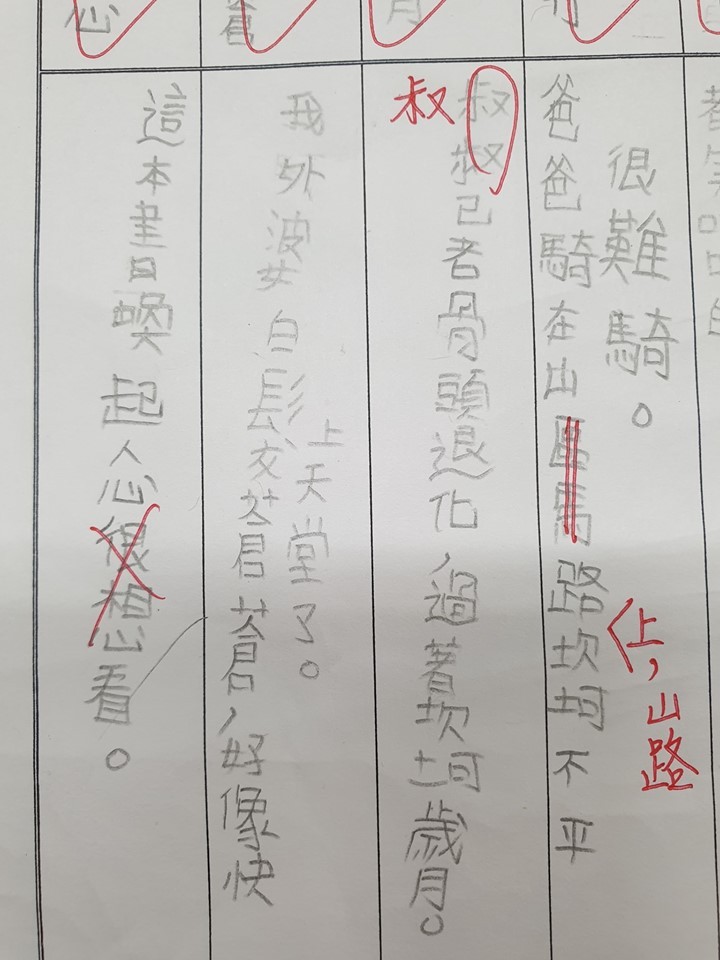 爸爸騎在山區馬路坎坷不平
很難騎。
上，山路
叔叔已者骨頭退化，過著坎坷歲月。
叔
我外婆白髮交蒼蒼，好像快
上天堂了。
這本書喚起人心很想看。